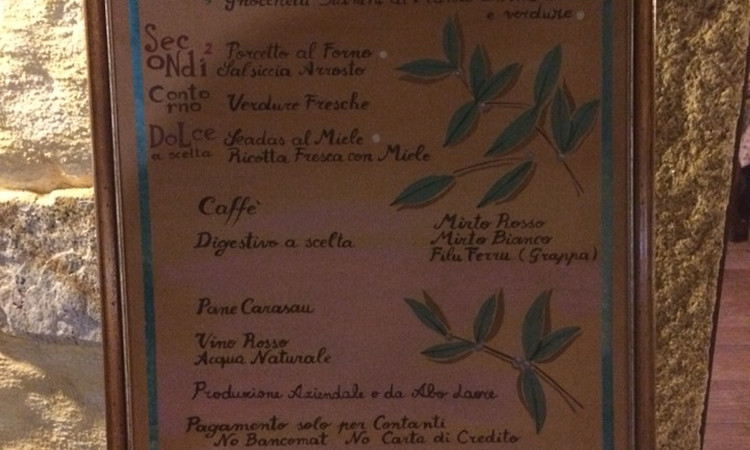 Gnocchetti
e verdure
Secondi 2 Porcetto al Forno
Salsiccia Arrosto
Contorno Verdure Fresche
Dolce Seadas al Miele
a scelta Ricotta Fresca con Miele
Caffe'
Digestivo a scelta
Mirto Rosso
Mirto Bianco
Filu Ferru (Grappa)
Pane Carasau
Vino Rosso
Acqua Naturale
Produzione Aziendale o da Abo
Pagamento solo per Contanti
No Bancomat No Carta di Credito